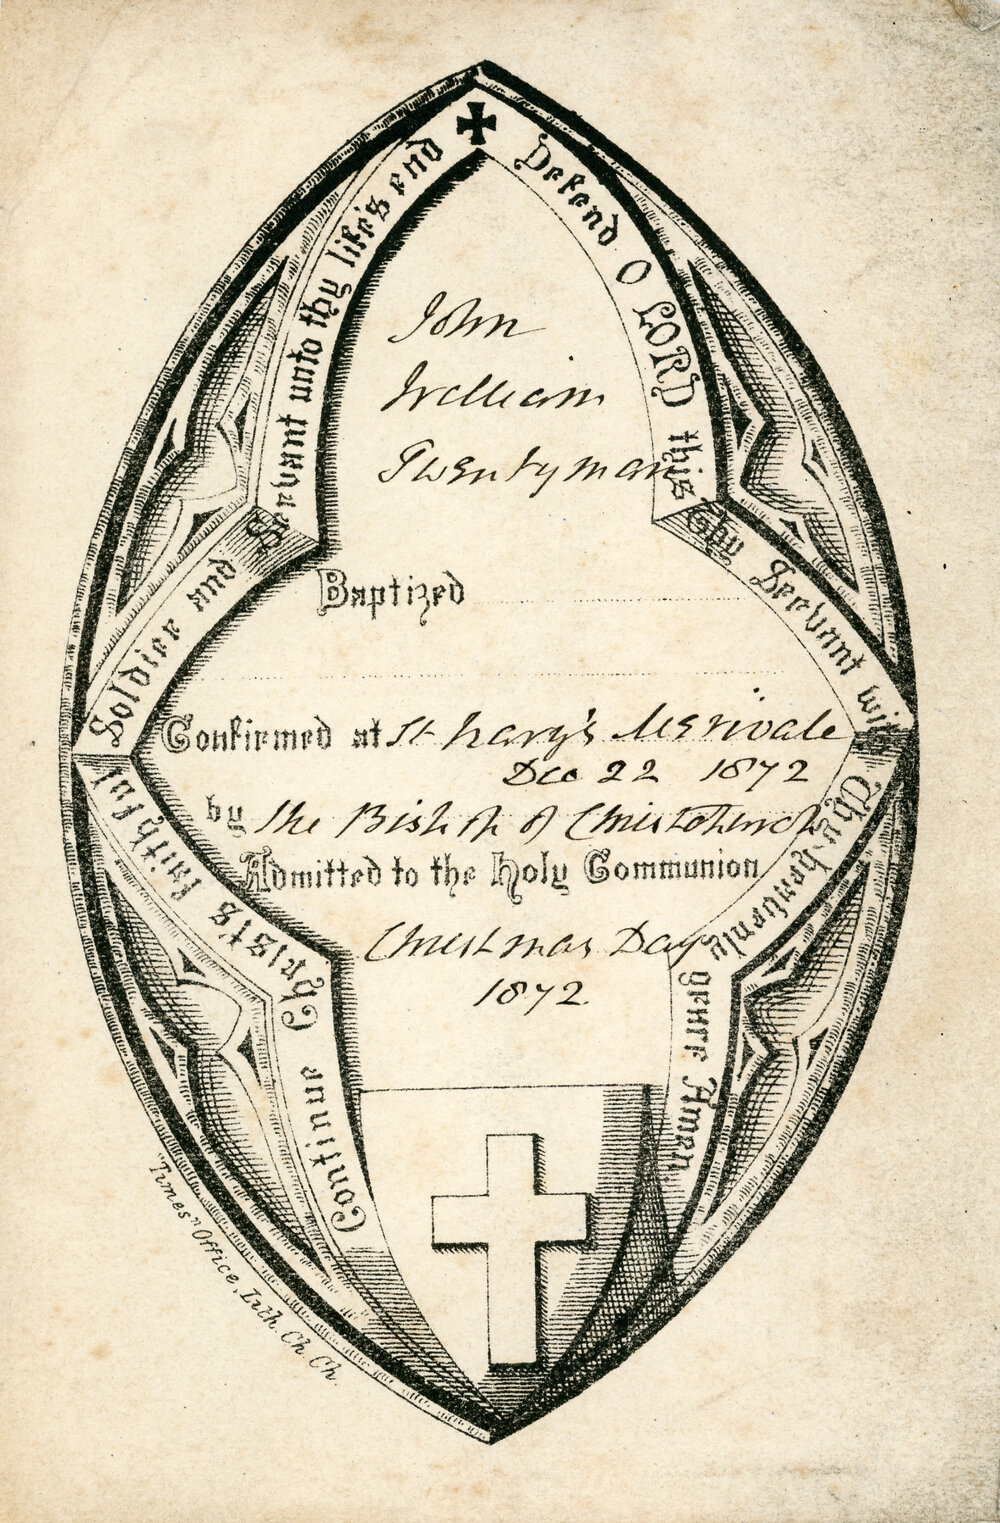 Defend O LORD this thy Servant with Thy heavenly grace Amen
Continue Christs faithful Soldier and Servant unto thy life's end
John
William
Twentyman
Baptized
Confirmed at St Mary's Merivale
Dec 22 1872
by the Bishop of Christchurch
Admitted to the Holy Communion
Christmas Day
1872
"Times" Office, Lith. Ch. Ch.